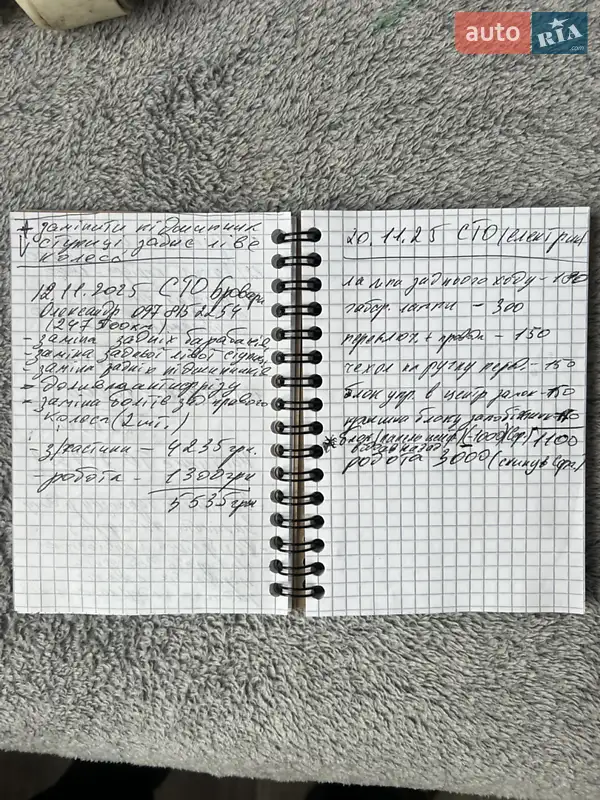 auto RIA .com
замінити підшипник
ступиці заднє ліве
колеса
12.11.2025 СТО Бровари
Олександр
(247 700км)
- заміна задніх барабанів
- заміна задньої лівої
- заміна задніх підшипників
- доливка антифрізу
- заміна болтів зад правого
колеса (2 шт.)
- з/частини - 4235 грн.
- робота - 1300 грн
5535 грн
20.11.25 СТО (електрик)
лампа заднього ходу -
габар. лампи - 300
переключ + провод - 150
чехол на ручку перед. - 150
блок упр. в центр замок -
кришка блоку запобіжник
1100
робота 3000 (скинув